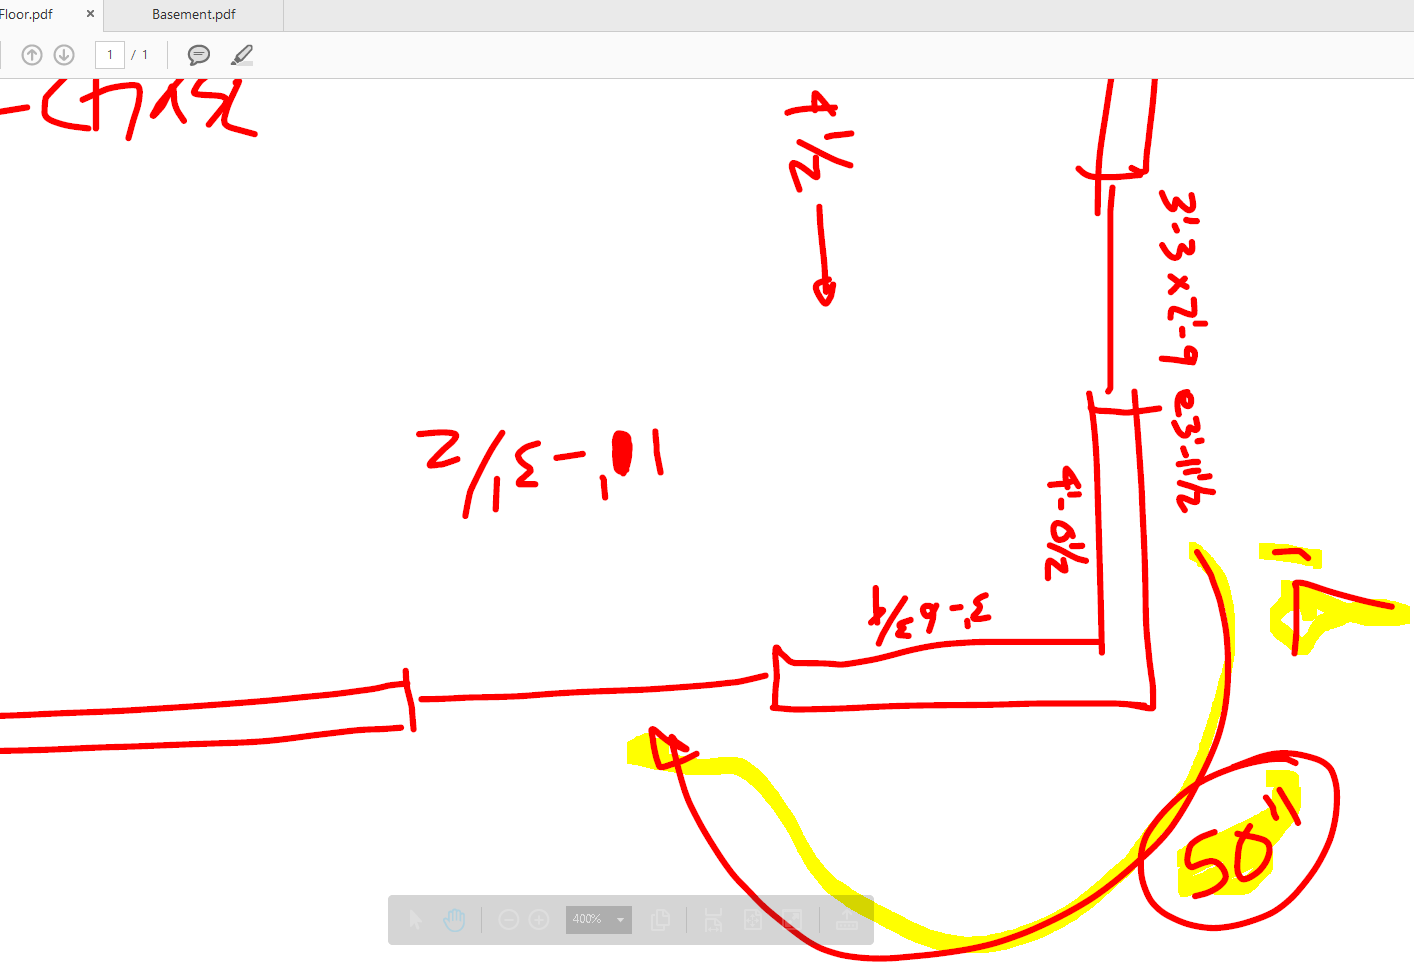 Floor.pdf × Basement.pdf
1 / 1
4 1/2
3'-3 x 2'-9 e3'-11 1/2
10'-3 1/2
4'-0 1/2
3'-6 3/4
50"
400%